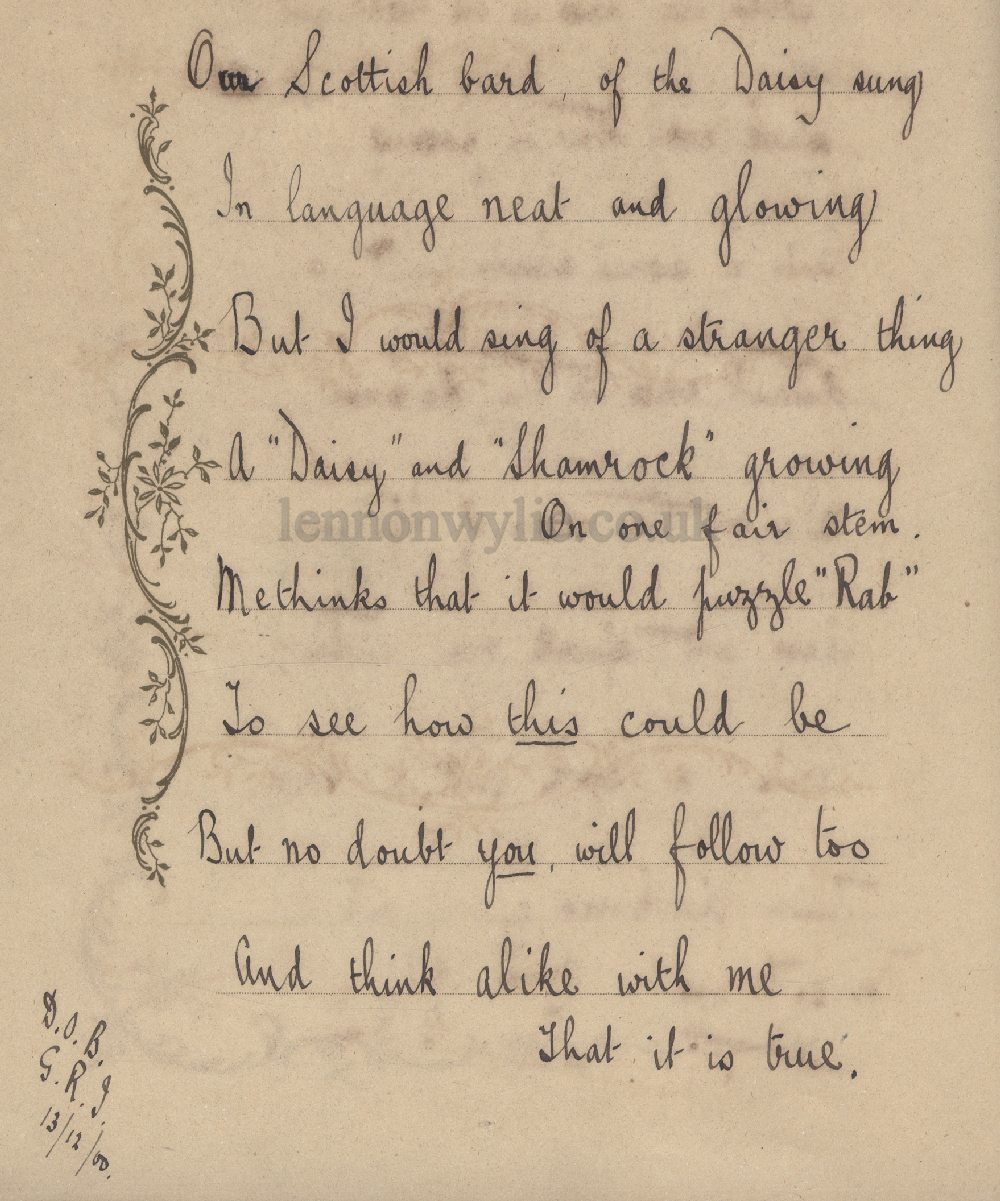 Our Scottish bard, of the Daisy sung
In language neat and glowing
But I would sing of a stranger thing
A "Daisy" and "Shamrock" growing
lennonwylie.co.uk
On one fair stem.
Methinks that it would puzzle "Rab"
To see how this could be
But no doubt you, will follow too
And think alike with me
That it is true.
D.O.B.
G.R.I.
13/12/00.